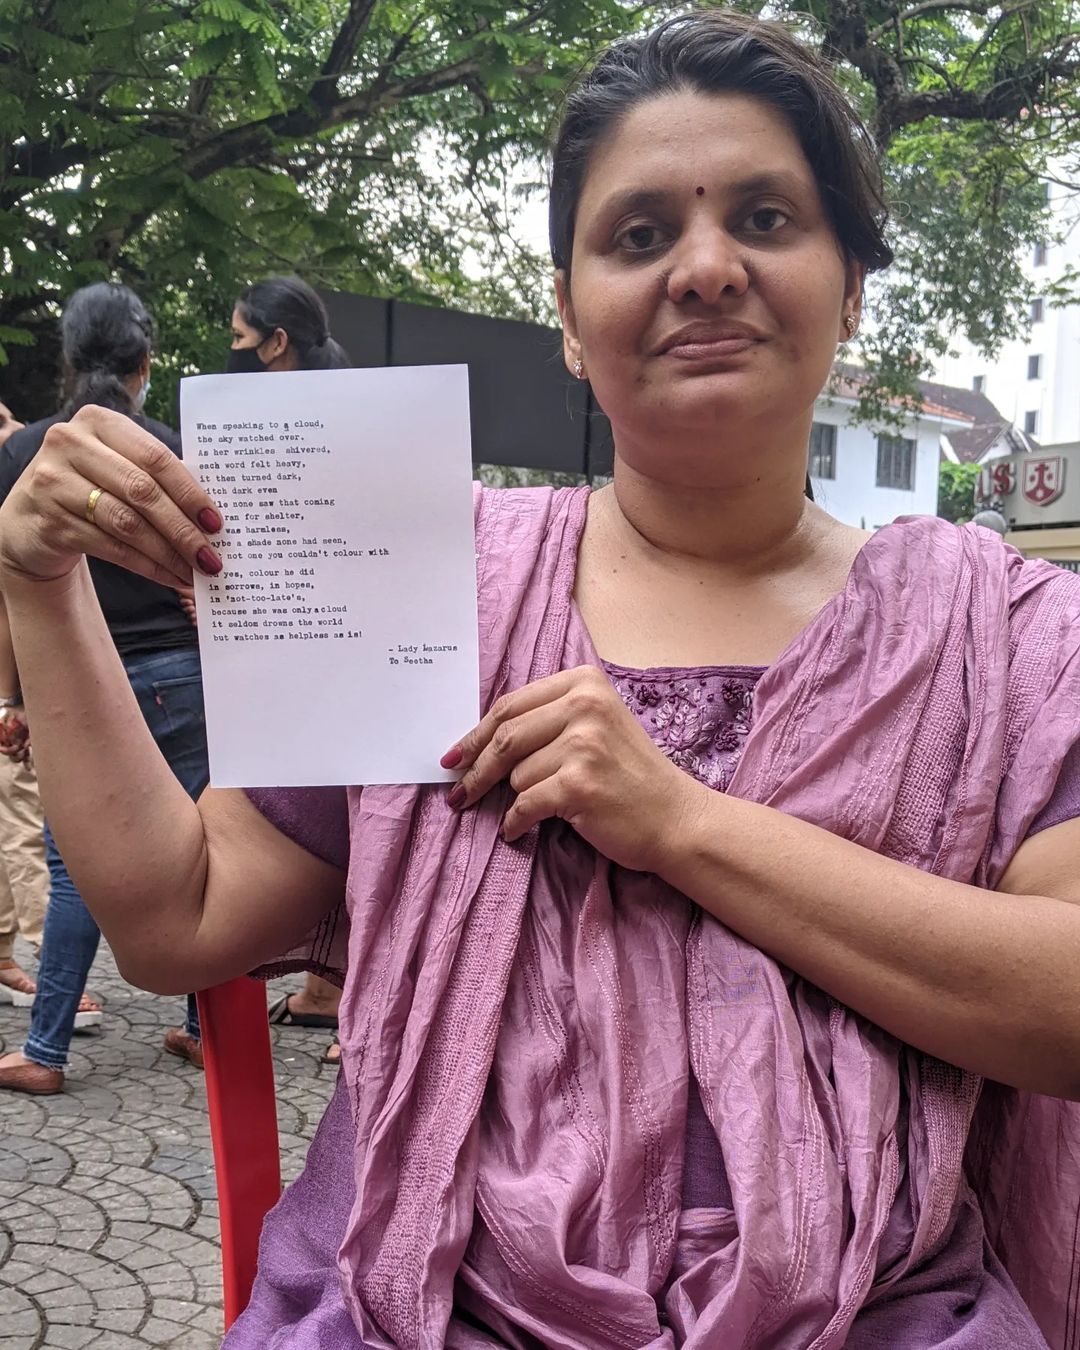 When speaking to a cloud,
the sky watched over.
As her wrinkles shivered,
each word felt heavy,
it then turned dark,
itch dark even
le none saw that coming
ran for shelter,
was harmless,
aybe a shade none had seen,
not one you couldn't colour with
yes, colour he did
in sorrows, in hopes,
in 'not-too-late's,
because she was only a cloud
it seldom drowns the world
but watches as helpless as is!
- Lady Lazarus
To Seetha
S